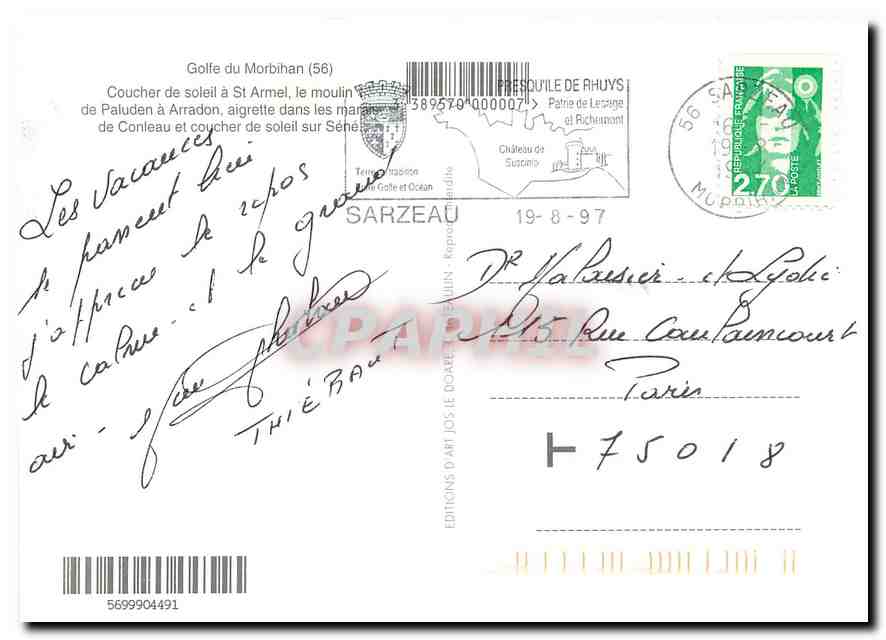 Golfe du Morbihan (56)
Coucher de soleil à St Armel, le moulin
de Paluden à Arradon, aigrette dans les marais
de Conleau et coucher de soleil sur Séné.
3 389570 000007 >
PRESQU'ILE DE RHUYS
Patrie de Lesage
et Richemont
Château de
Suscinio
Terre Tradition
Golfe et Océan
SARZEAU 19-8-97
56 SARZEAU
MORBIHAN
RÉPUBLIQUE FRANÇAISE
LA POSTE
2,70
Les vacances
se passent bien
j'apprécie le repos
le calme - et le grand
air -
THIÉBAUT
Dr et Lydie
115 Rue
Paris
75018
EDITIONS D'ART JOS LE DOARE - CHATEAULIN - Reproduction interdite
CPAPHIL
5699904491